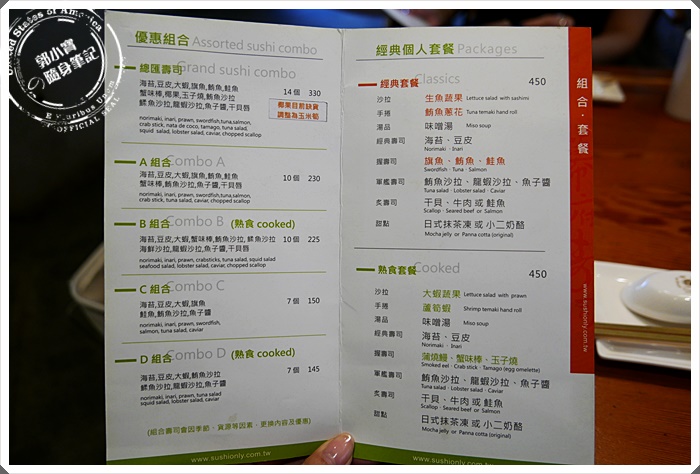 United States of America
郭小寶
の隨身筆記
E Pluribus Unum
OFFICIAL SEAL
優惠組合 Assorted sushi combo
總匯壽司 Grand sushi combo
海苔,豆皮,大蝦,旗魚,鮪魚,鮭魚 14個 330
蟹味棒,椰果,玉子燒,鮪魚沙拉
鱈魚沙拉,龍蝦沙拉,魚子醬,干貝唇
椰果目前缺貨
調整為玉米筍
norimaki, inari, prawn, swordfish,tuna,salmon,
crab stick, nata de coco, tamago, tuna salad,
squid salad, lobster salad, caviar, chopped scallop
A 組合 Combo A
海苔,豆皮,大蝦,旗魚,鮪魚,鮭魚 10個 230
蟹味棒,鮪魚沙拉,魚子醬,干貝唇
norimaki, inari, prawn, swordfish,tuna,salmon,
crab stick, tuna salad, caviar, chopped scallop
B 組合 Combo B (熟食 cooked)
海苔,豆皮,大蝦,蟹味棒,鮪魚沙拉,鱈魚沙拉 10個 225
海鮮沙拉,龍蝦沙拉,魚子醬,干貝唇
norimaki, inari, prawn, crabsticks, tuna salad, squid salad
seafood salad, lobster salad, caviar, chopped scallop
C 組合 Combo C
海苔,豆皮,大蝦,旗魚 7個 150
鮭魚,鮪魚沙拉,魚子醬
norimaki, inari, prawn, swordfish,
salmon, tuna salad, caviar
D 組合 Combo D (熟食 cooked)
海苔,豆皮,大蝦,鮪魚沙拉 7個 145
鱈魚沙拉,龍蝦沙拉,魚子醬
norimaki, inari, prawn, tuna salad
squid salad, lobster salad, caviar
(組合壽司會因季節、貨源等因素,更換內容及優惠)
www.sushionly.com.tw
經典個人套餐 Packages
經典套餐 Classics 450
沙拉 生魚蔬果 Lettuce salad with sashimi
手捲 鮪魚蔥花 Tuna temaki hand roll
湯品 味噌湯 Miso soup
經典壽司 海苔、豆皮
Norimaki · Inari
握壽司 旗魚、鮪魚、鮭魚
Swordfish · Tuna · Salmon
軍艦壽司 鮪魚沙拉、龍蝦沙拉、魚子醬
Tuna salad · Lobster salad · Caviar
炙壽司 干貝、牛肉 或 鮭魚
Scallop · Seared beef or Salmon
甜點 日式抹茶凍 或 小二奶酪
Mocha jelly or Panna cotta (original)
熟食套餐 Cooked 450
沙拉 大蝦蔬果 Lettuce salad with prawn
手捲 蘆筍蝦 Shrimp temaki hand roll
湯品 味噌湯 Miso soup
經典壽司 海苔、豆皮
Norimaki · Inari
握壽司 蒲燒鰻、蟹味棒、玉子燒
Smoked eel · Crab stick · Tamago (egg omelette)
軍艦壽司 鮪魚沙拉、龍蝦沙拉、魚子醬
Tuna salad · Lobster salad · Caviar
炙壽司 干貝、牛肉 或 鮭魚
Scallop · Seared beef or Salmon
甜點 日式抹茶凍 或 小二奶酪
Mocha jelly or Panna cotta (original)
www.sushionly.com.tw
組合·套餐
www.sushionly.com.tw